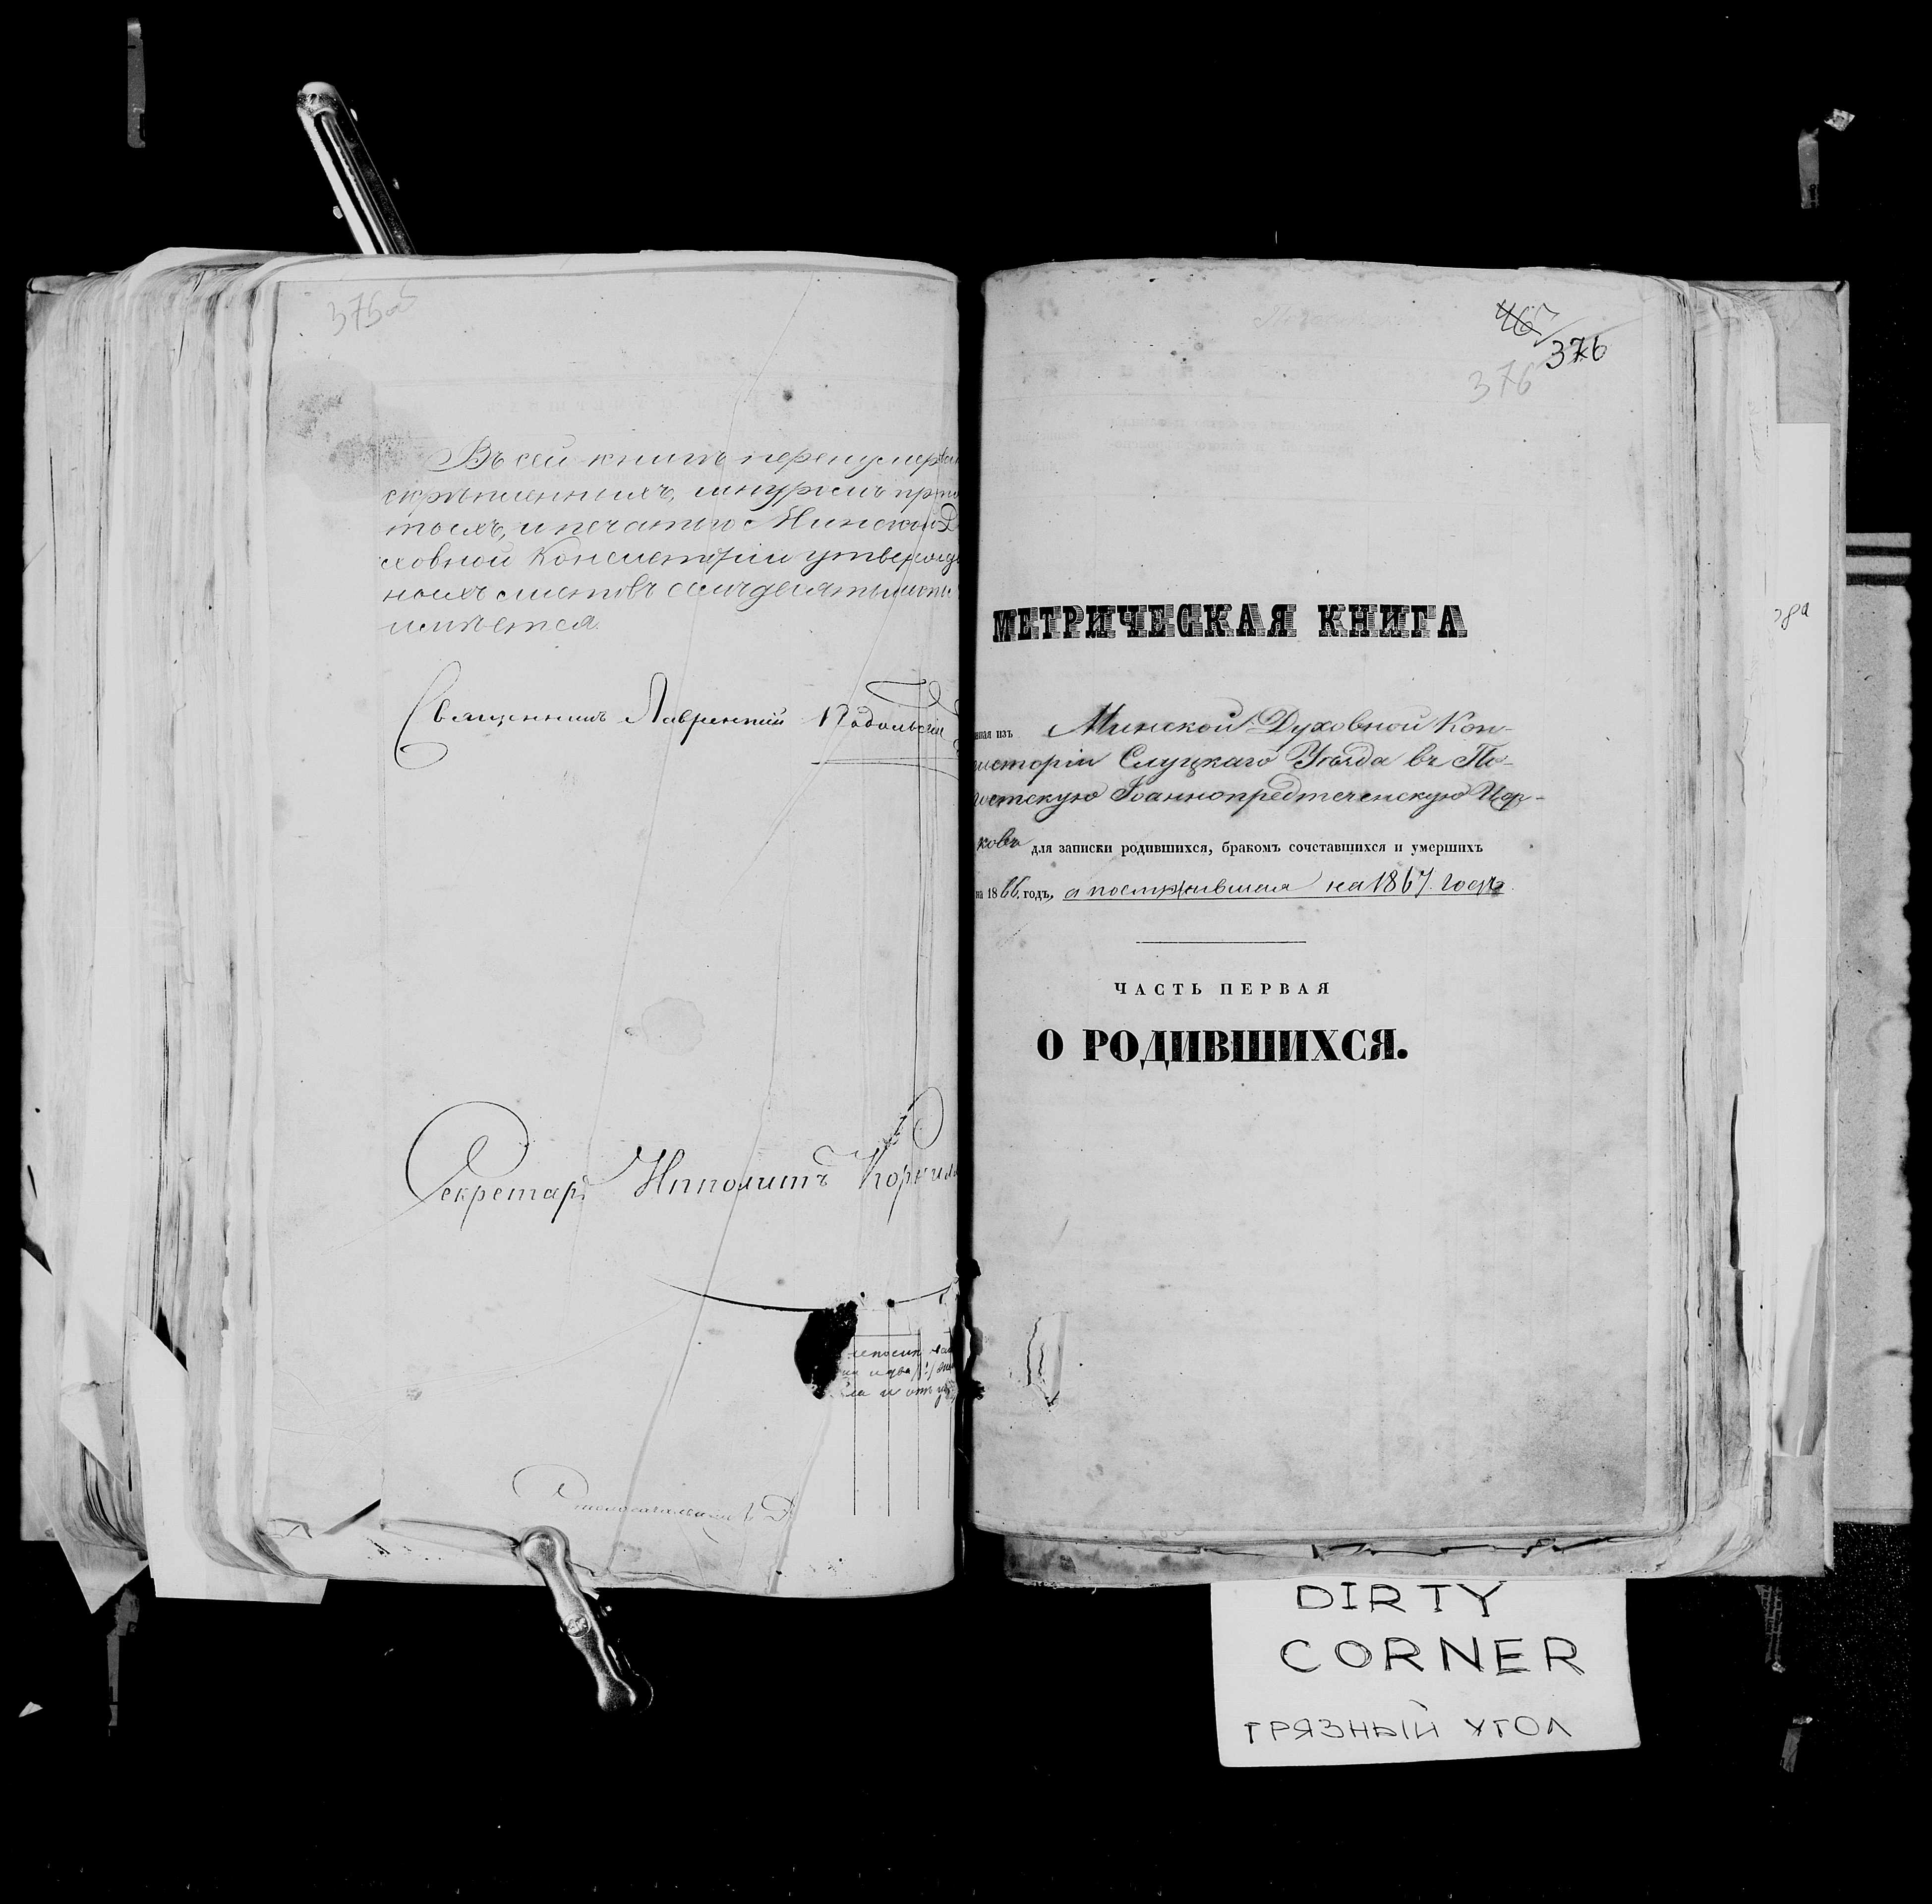 375об
Въ сей книгѣ перенумеро
скрѣпленныхъ, шнуромъ
тыхъ, и печатью Минской Д
ховной Консисторіи утвержд
ныхъ листовъ семьдесятъ
имѣется.
Священникъ Лаврентій Подольскій
Секретарь Ипполитъ
Столоначальникъ
467
376
376
МЕТРИЧЕСКАЯ КНИГА
нная изъ Минской Духовной Кон-
систоріи Слуцкаго Уѣзда въ По-
гостскую Іоаннопредтеченскую Цер-
ковь для записки родившихся, бракомъ сочетавшихся и умершихъ
на 1866 годъ, а послужившая на 1867 годъ.
ЧАСТЬ ПЕРВАЯ
О РОДИВШИХСЯ.
DIRTY
CORNER
ГРЯЗНЫЙ УГОЛ